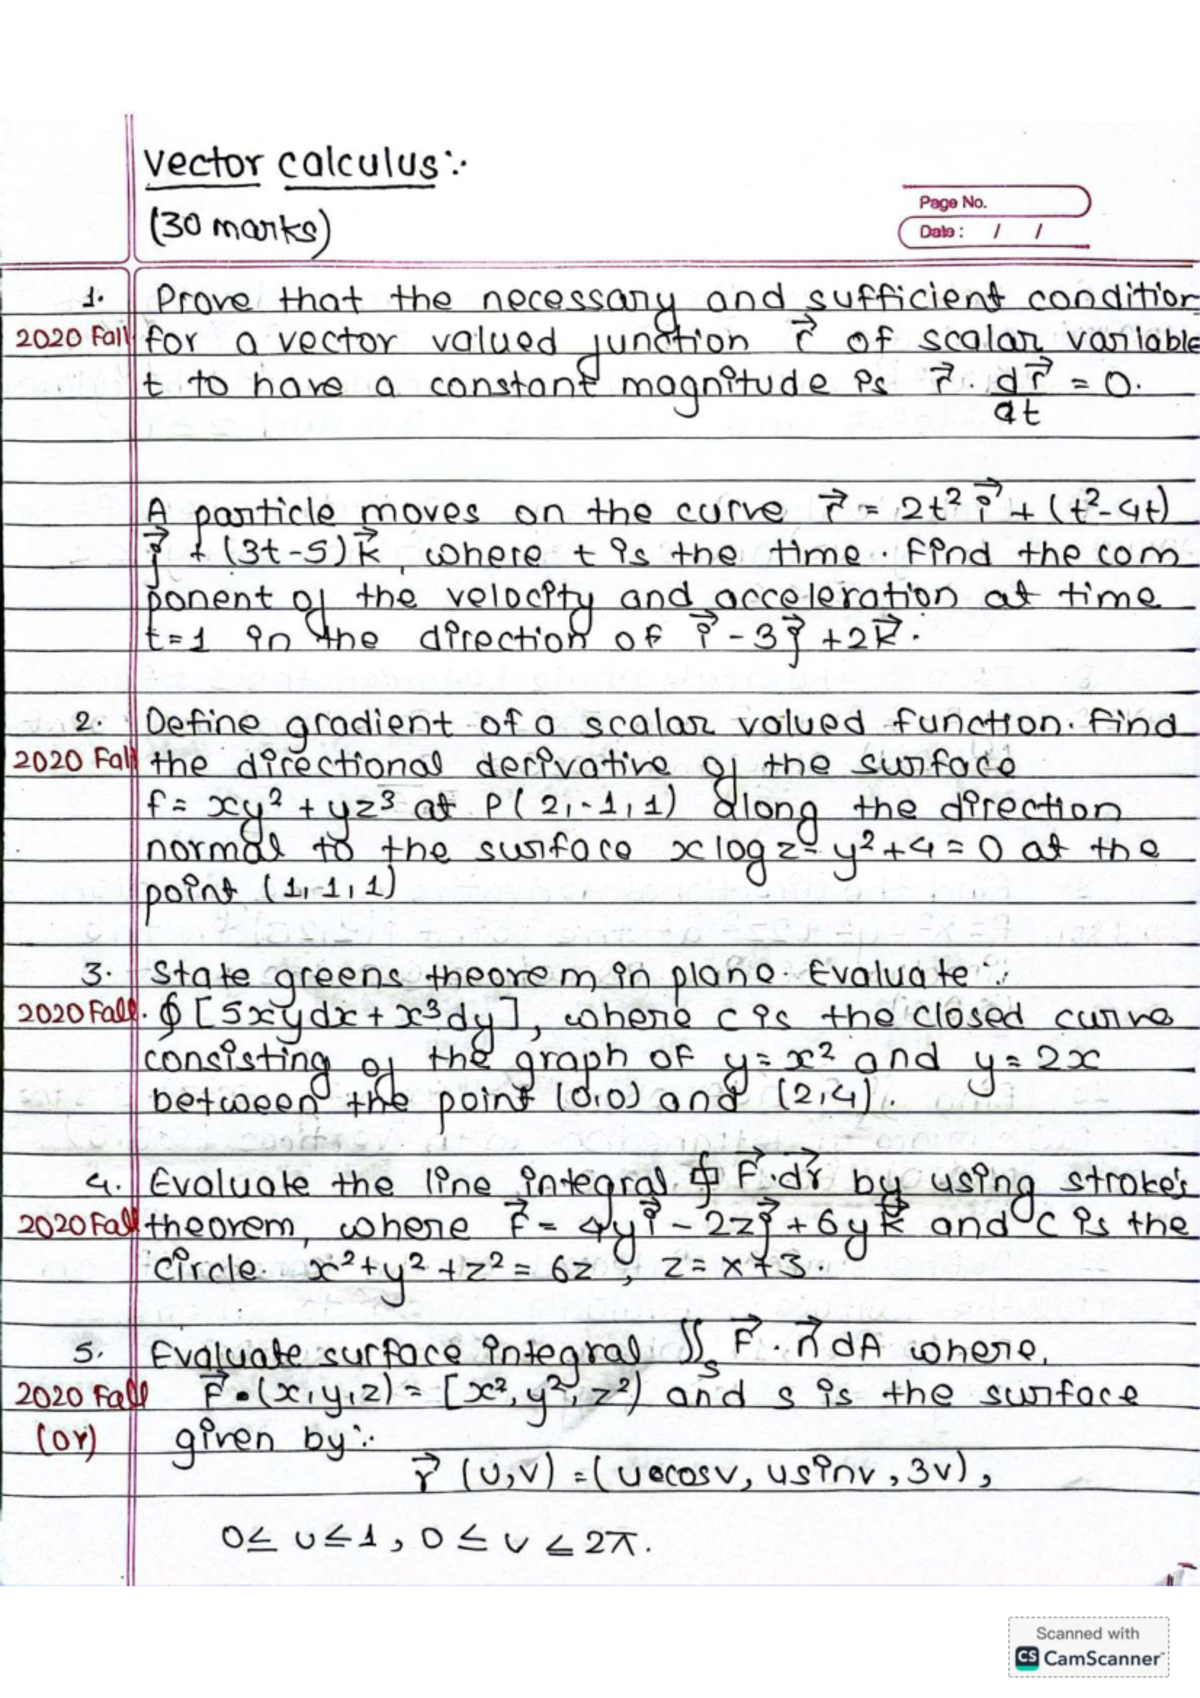 Vector calculus:-
(30 marks)
Page No.
Date: / /
1. Prove that the necessary and sufficient condition
2020 Fall for a vector valued junction r⃗ of scalar variable
t to have a constant magnitude is r⃗ . dr⃗/dt = 0.
A particle moves on the curve r⃗ = 2t² i⃗ + (t²-4t)
j⃗ + (3t-5) k⃗, where t is the time. Find the com
ponent of the velocity and acceleration at time
t=1 in the direction of i⃗ - 3j⃗ + 2k⃗.
2. Define gradient of a scalar valued function. Find
2020 Fall the directional derivative of the surface
f= xy² + yz³ at P(2,-1,1) along the direction
normal to the surface x log z - y² + 4 = 0 at the
point (1,-1,1)
3. State greens theorem in plane. Evaluate:-
2020 Fall. ∮ [5xydx + x³dy], where C is the closed curve
consisting of the graph of y = x² and y = 2x
between the point (0,0) and (2,4).
4. Evaluate the line integral ∮ F⃗.dr⃗ by using stroke's
2020 Fall theorem, where F⃗ = 4yi⃗ - 2zj⃗ + 6yk⃗ and C is the
circle. x² + y² + z² = 6z, z = x+3.
5. Evaluate surface integral ∬s F⃗ . n⃗ dA where,
2020 Fall F⃗.(x,y,z) = [x², y², z²) and s is the surface
(or) given by:-
r⃗ (u,v) = (u cosv, usinv, 3v),
0 ≤ u ≤ 1, 0 ≤ v ≤ 2π.
Scanned with
CS CamScanner